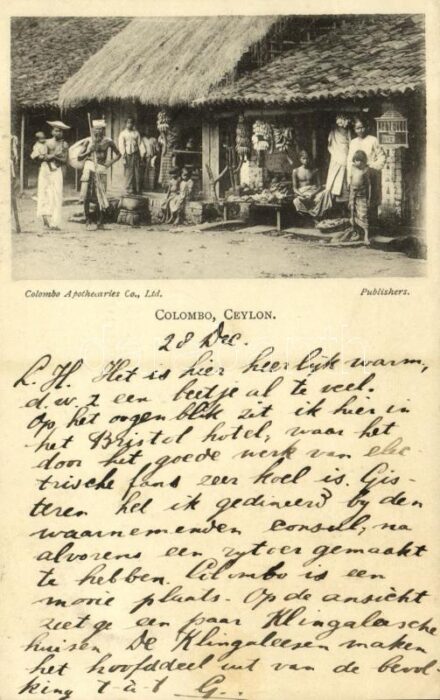 Colombo Apothecaries Co., Ltd.
Publishers.
COLOMBO, CEYLON.
28 Dec.
L. H. Het is hier heerlijk warm,
d.w.z een beetje al te veel.
Op het oogenblik zit ik hier in
het Bristol hotel, waar het
door het goede werk van elec
trische fans zeer koel is. Gis-
teren heb ik gedineerd bij den
waarnemenden consul, na
alvorens een rytoer gemaakt
te hebben. Colombo is een
mooie plaats. Op de ansicht
zeet ge een paar Klingaleesche
huizen De Klingaleesen maken
het hoofddeel uit van de bevol-
king t-à-t G.